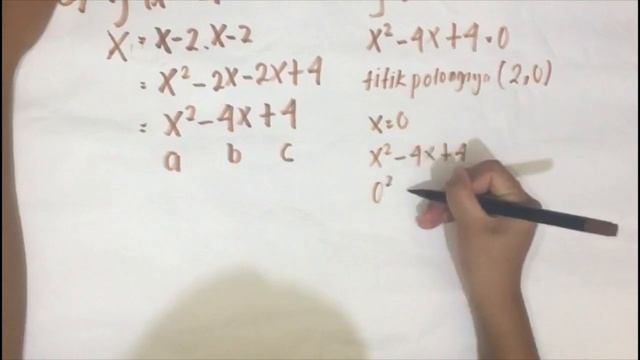 X = x-2.x-2
= x²-2x-2x+4
= x²-4x+4
a b c
x²-4x+4=0
titik potongnya (2,0)
x=0
x²-4x+4
0²